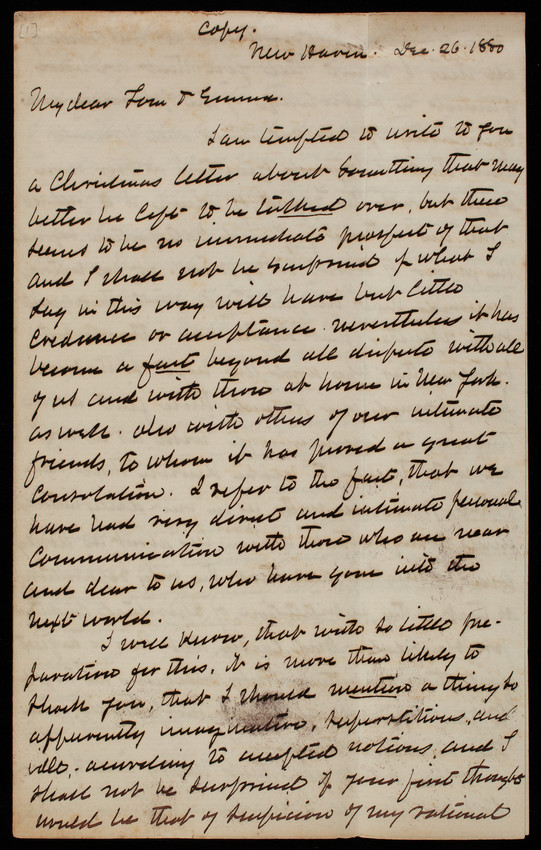 [1]
Copy.
New Haven. Dec. 26. 1880
My dear Tom & Emma.
I am tempted to write to you
a Christmas letter about something that may
better be left to be talked over, but there
seems to be no immediate prospect of that
and I shall not be surprised if what I
say in this way will have but little
credence or acceptance. nevertheless it has
become a fact beyond all dispute with all
of us and with those at home in New York.
as well. also with others of our intimate
friends, to whom it has proved a great
Consolation. I refer to the fact, that we
have had very direct and intimate personal
Communication with those who are near
and dear to us, who have gone into the
next world.
I well know, that with so little pre-
paration for this, it is more than likely to
shock you, that I should mention a thing so
apparently imaginative, superstitious, and
idle,- according to accepted notions, and I
shall not be surprised if your first thoughts
would be that of suspicion of my rational